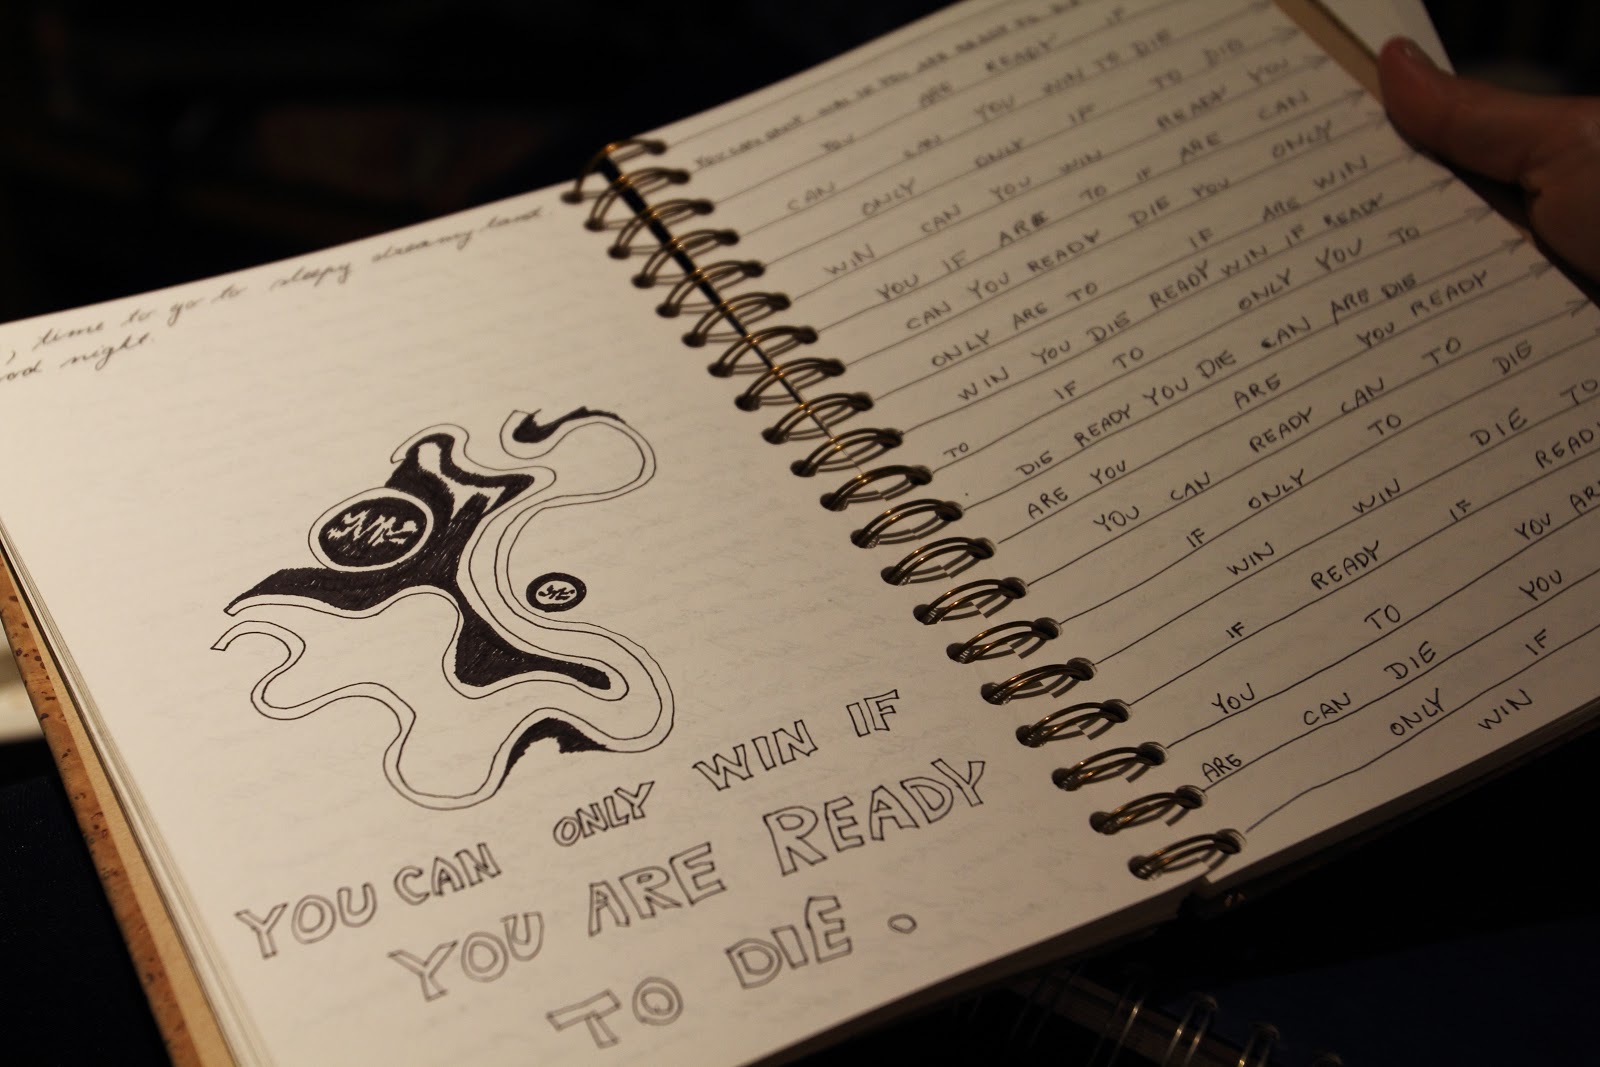 time to go to sleepy dreamy land.
ood night.
YOU CAN ONLY WIN IF
YOU ARE READY
TO DIE.
YOU CAN ONLY WIN IF YOU ARE READY TO
YOU ARE READY IF
CAN CAN YOU WIN TO DIE
ONLY ONLY IF TO DIE
WIN CAN YOU WIN READY YOU
YOU IF ARE TO IF ARE CAN
CAN YOU READY DIE YOU ONLY
ONLY ARE TO IF ARE WIN
WIN YOU DIE READY WIN IF READY
TO IF TO ONLY YOU TO
DIE READY YOU DIE CAN ARE DIE
ARE YOU ARE YOU READY
YOU CAN READY CAN TO
IF ONLY TO DIE
WIN WIN DIE TO
IF READY IF READY
YOU TO YOU ARE
ARE CAN DIE YOU
ONLY IF
WIN